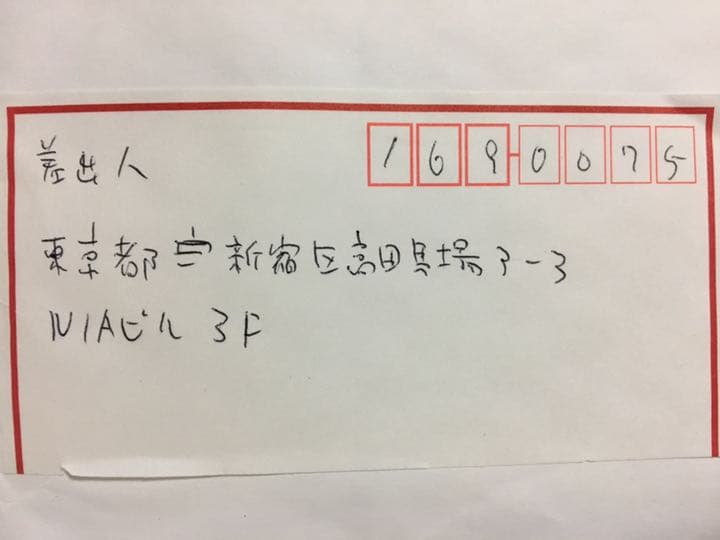 差出人
169-0075
東京都新宿区高田馬場3-3
NIAビル 3F